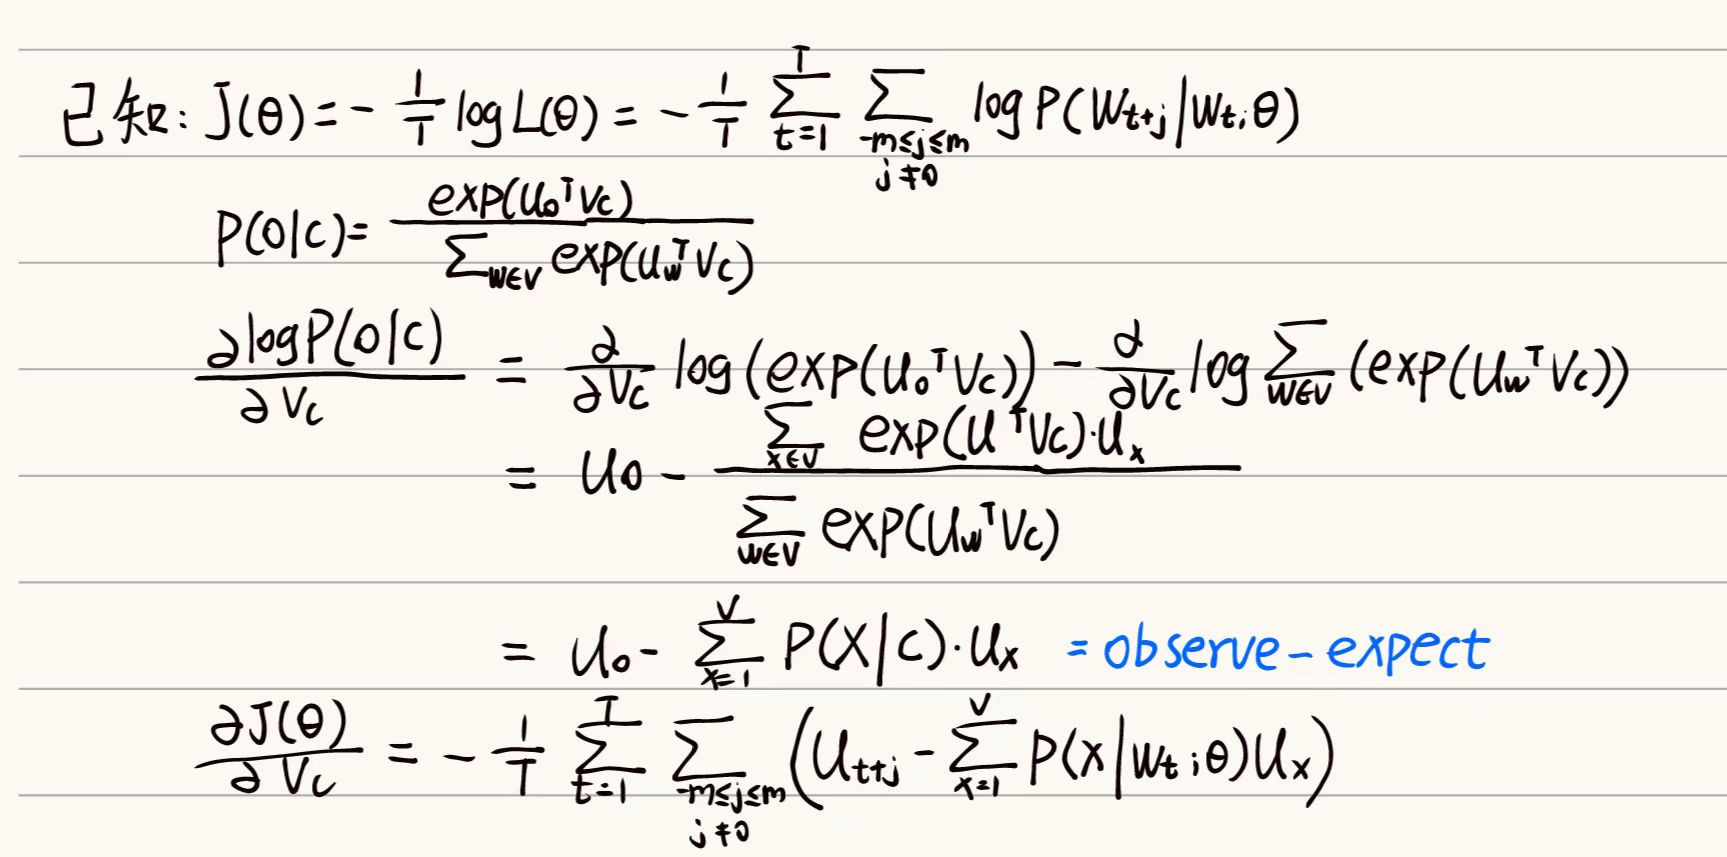 已知: J(θ) = - 1/T log L(θ) = - 1/T ∑_{t=1}^{T} ∑_{-m≤j≤m, j≠0} log P(W_{t+j}|W_t; θ)
P(O|C) = exp(U_o^T V_c) / ∑_{w∈V} exp(U_w^T V_c)
∂logP(O|C) / ∂V_c = ∂/∂V_c log(exp(U_o^T V_c)) - ∂/∂V_c log ∑_{w∈V} (exp(U_w^T V_c))
= U_o - ∑_{x∈V} exp(U^T V_c)·U_x / ∑_{w∈V} exp(U_w^T V_c)
= U_o - ∑_{x=1}^{V} P(X|C)·U_x = observe - expect
∂J(θ) / ∂V_c = - 1/T ∑_{t=1}^{T} ∑_{-m≤j≤m, j≠0} (U_{t+j} - ∑_{x=1}^{V} P(x|W_t; θ)U_x)